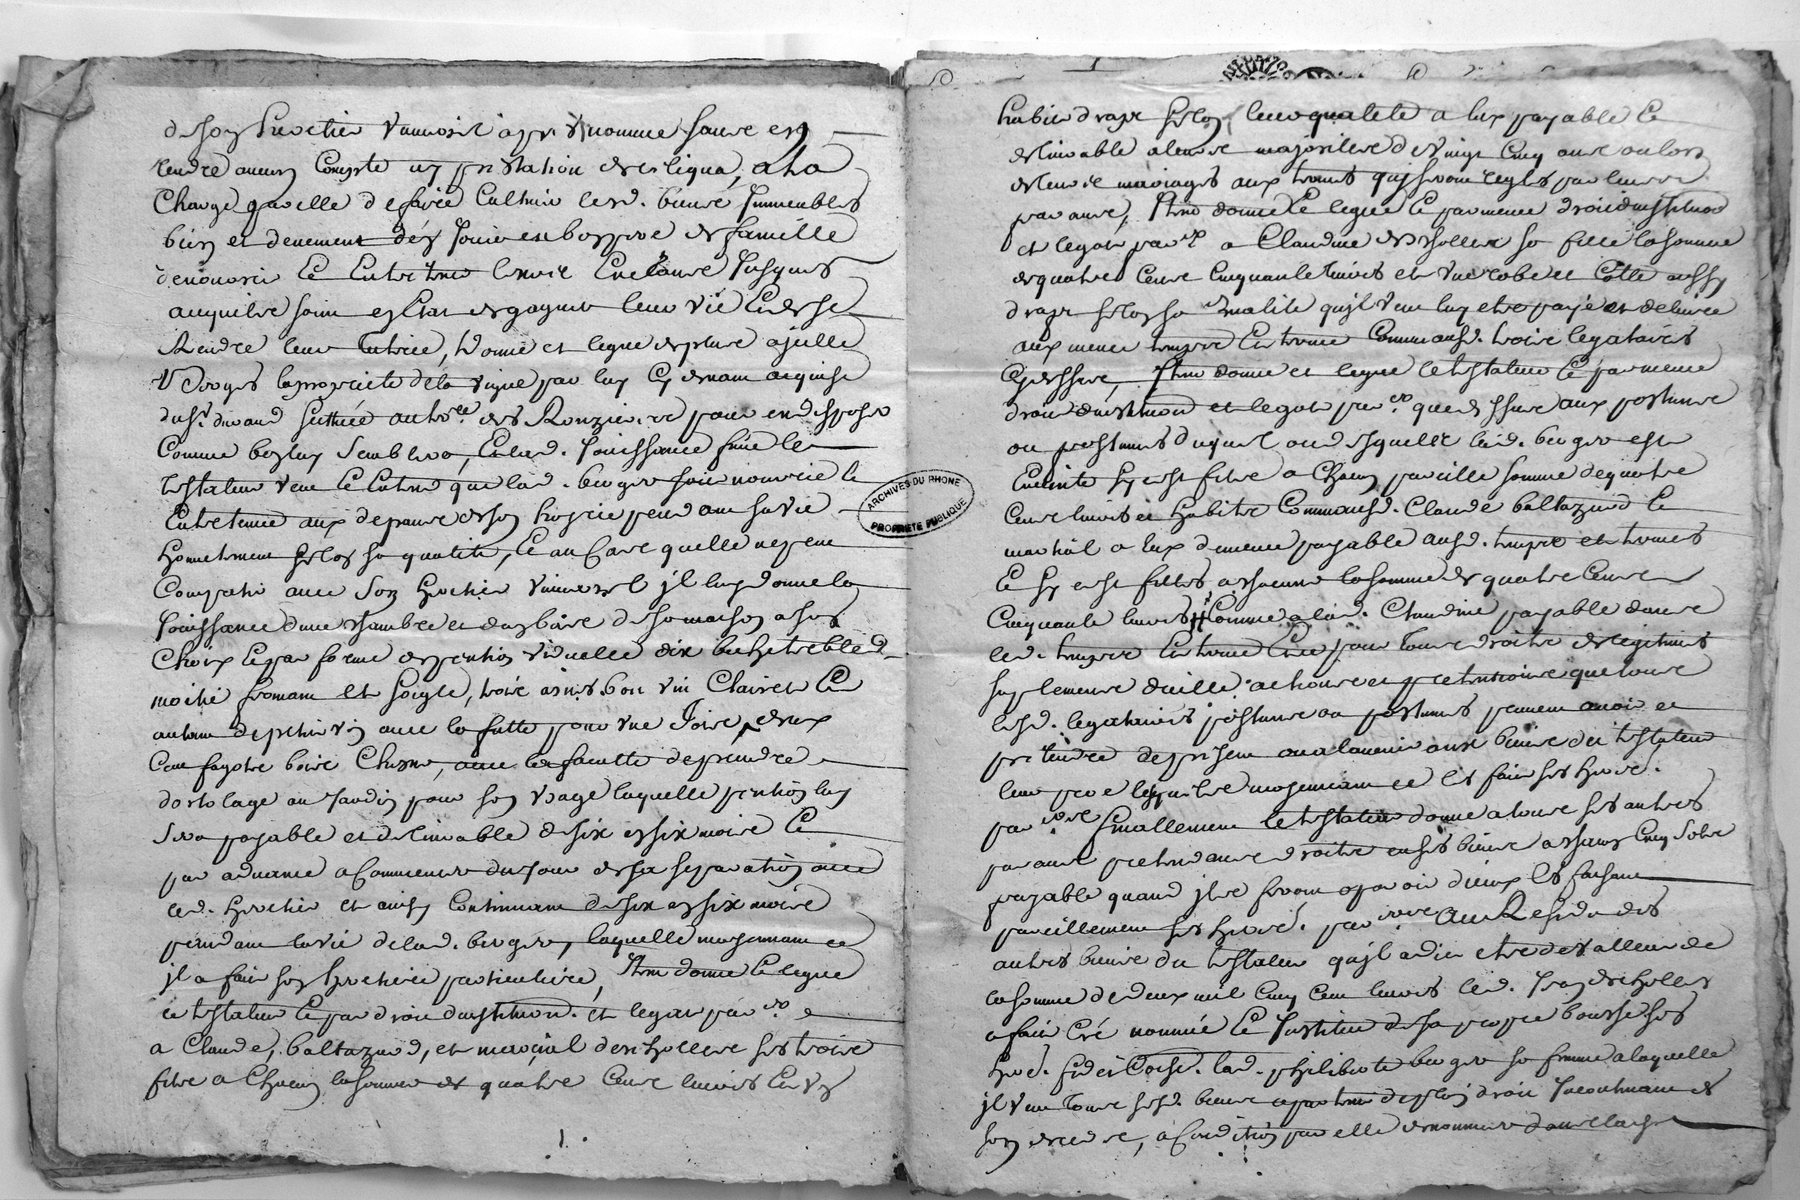 de son heretier universel apres nommé sans en
rendre aucun compte ny prestation de reliqua, a la
charge par elle de faire cultiver lesd. biens immeubles
bien et deuement d'en jouir en bon pere de famille
de nourrir et entretenir leurs enfans jusques
a ce qu'ils soient en etat de gagner leur vie et de se
rendre leur entrée, donne et legue de plus a jcelle
Berger la proprieté de la vigne par luy cy devant acquise
du sr. durand scittuée au de Ronzieres pour en disposer
comme bon luy semblera, et lad. jouissance finie le
testateur veut et entend que lad. berger soit nourrie et
entretenue aux depans de son hoirie pendant sa vie
honnetement selon sa qualité, et au cas quelle ne peut
compatir avec son heretier universel jl luy donne la
jouissance d'une chambre et d'un bas de sa maison a son
choix et par forme de pention viduelle dix bichets bled
moitié froment et soigle, trois asnées bon vin clairet et
autant de petit vin avec la futte pour une fois, deux
cent fagots bois chesne, avec la faculté de prendre
d'ortolage au jardin pour son usage laquelle pention luy
sera payable et delivrable de six en six mois et
par advance a commencer du jour de sa separation avec
led. heretier et ainsy continuant de six en six mois
pendant la vie de lad. berger, laquelle moyennant ce
jl a fait son heretiere particuliere, Item donne et legue
le testateur et par droit d'institution et legat par
a Claude, baltazard, et marcial deschollets ses trois
fils a chacun la somme de quatre cents livres et un

habit drap selon leur qualité a eux payable et
delivrable a leurs majorités de vingt cinq ans ou lors
de leurs mariages aux termes qui seront reglés par leurs
parans, Item donne et legue et par meme droit d'institution
et legat par a Claudine deschollets sa fille la somme
de quatre cents cinquante livres et une robe et cotte aussy
drap selon sa qualité qu'jl veut luy etre payé et delivré
aux memes temps et termes comme ausd. trois legataires
cy dessus, Item donne et legue le testateur et par meme
droit d'institution et legat par que dessus aux postume
ou postumes duquel ou desquelles lad. berger est
enceinte sy c'est fils a chacun pareille somme de quatre
cents livres et habits comme ausd. Claude baltazard et
martial a eux de meme payable ausd. temps et termes
et sy c'est filles a chacune la somme de quatre cents
cinquante livres comme a lad. Claudine payable dans
led. temps et terme et ce pour tous droits de legitimes
suplements d'icelle actions et pretentions que tous
lesd. legataires postume ou postumes peuvent avoir et
pretendre de present ou a l'avenir aux biens du testateur
leur pere lesquels moyennant ce les fait ses heres.
par Finallement le testateur donne a tous ses autres
parans pretendants droits en ses biens a chacun cinq sols
payable quand jls feront aparoir d'iceux les faisant
pareillement ses heres. par Au Residu des
autres biens du testateur qu'jl a dit etre de valleur de
la somme de deux mil cinq cent livres led. Jean deschollets
a fait créé nommé et institué de sa propre bouche ses
heres. fidei Coise. lad. philiberte berger sa femme a laquelle
jl veut tous sesd. biens apartenir de plein droit jncontinant
son deces, a condition par elle de nommer dans l'an
ARCHIVES DU RHONE
PROPRIETE PUBLIQUE